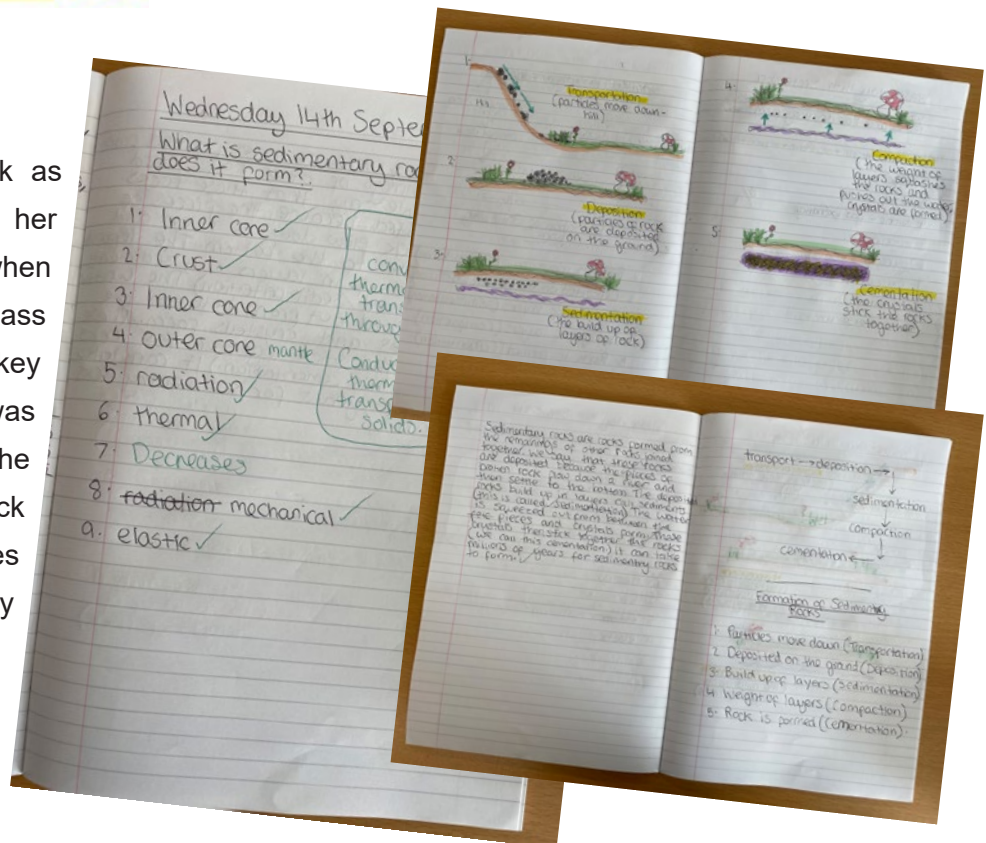 k as
her
when
ass
key
was
he
ck
es
y
Wednesday 14th Septe
What is sedimentary roc
does it form?
1. Inner core
2. Crust
3. Inner core
4. outer core mantle
5. radiation
6. thermal
7. Decreases
8. radiation mechanical
9. elastic
conv
therm
trans
throug
Conduc
therm
transf
solids.
1.
Transportation
(particles move down-
hill)
2.
Deposition
(particles of rock
are deposited
on the ground)
3.
Sedimentation
(the build up of
layers of rock)
4.
Compaction
(the weight of
layers squashes
the rocks and
pushes out the water
crystals are formed)
5.
Cementation
(the crystals
stick the rocks
together)
Sedimentary rocks are rocks formed from
the remainings of other rocks joined
together. We say that these rocks
are deposited because the pieces of
broken rock flow down a river and
then settle to the bottom. The deposited
rocks build up in layers call sediments
(this is called sedimentation) The water
is squeezed out from between the
pieces and crystals form. These
crystals then stick together the rocks
(we call this cementation) it can take
millions of years for sedimentry rocks
to form.
transport → deposition →
sedimentation
compaction
cementation ←
Formation of Sedimentry
Rocks
1. Particles move down (Transportation)
2. Deposited on the ground (Deposition)
3. Build up of layers (Sedimentation)
4. Weight of layers (Compaction)
5. Rock is formed (Cementation).